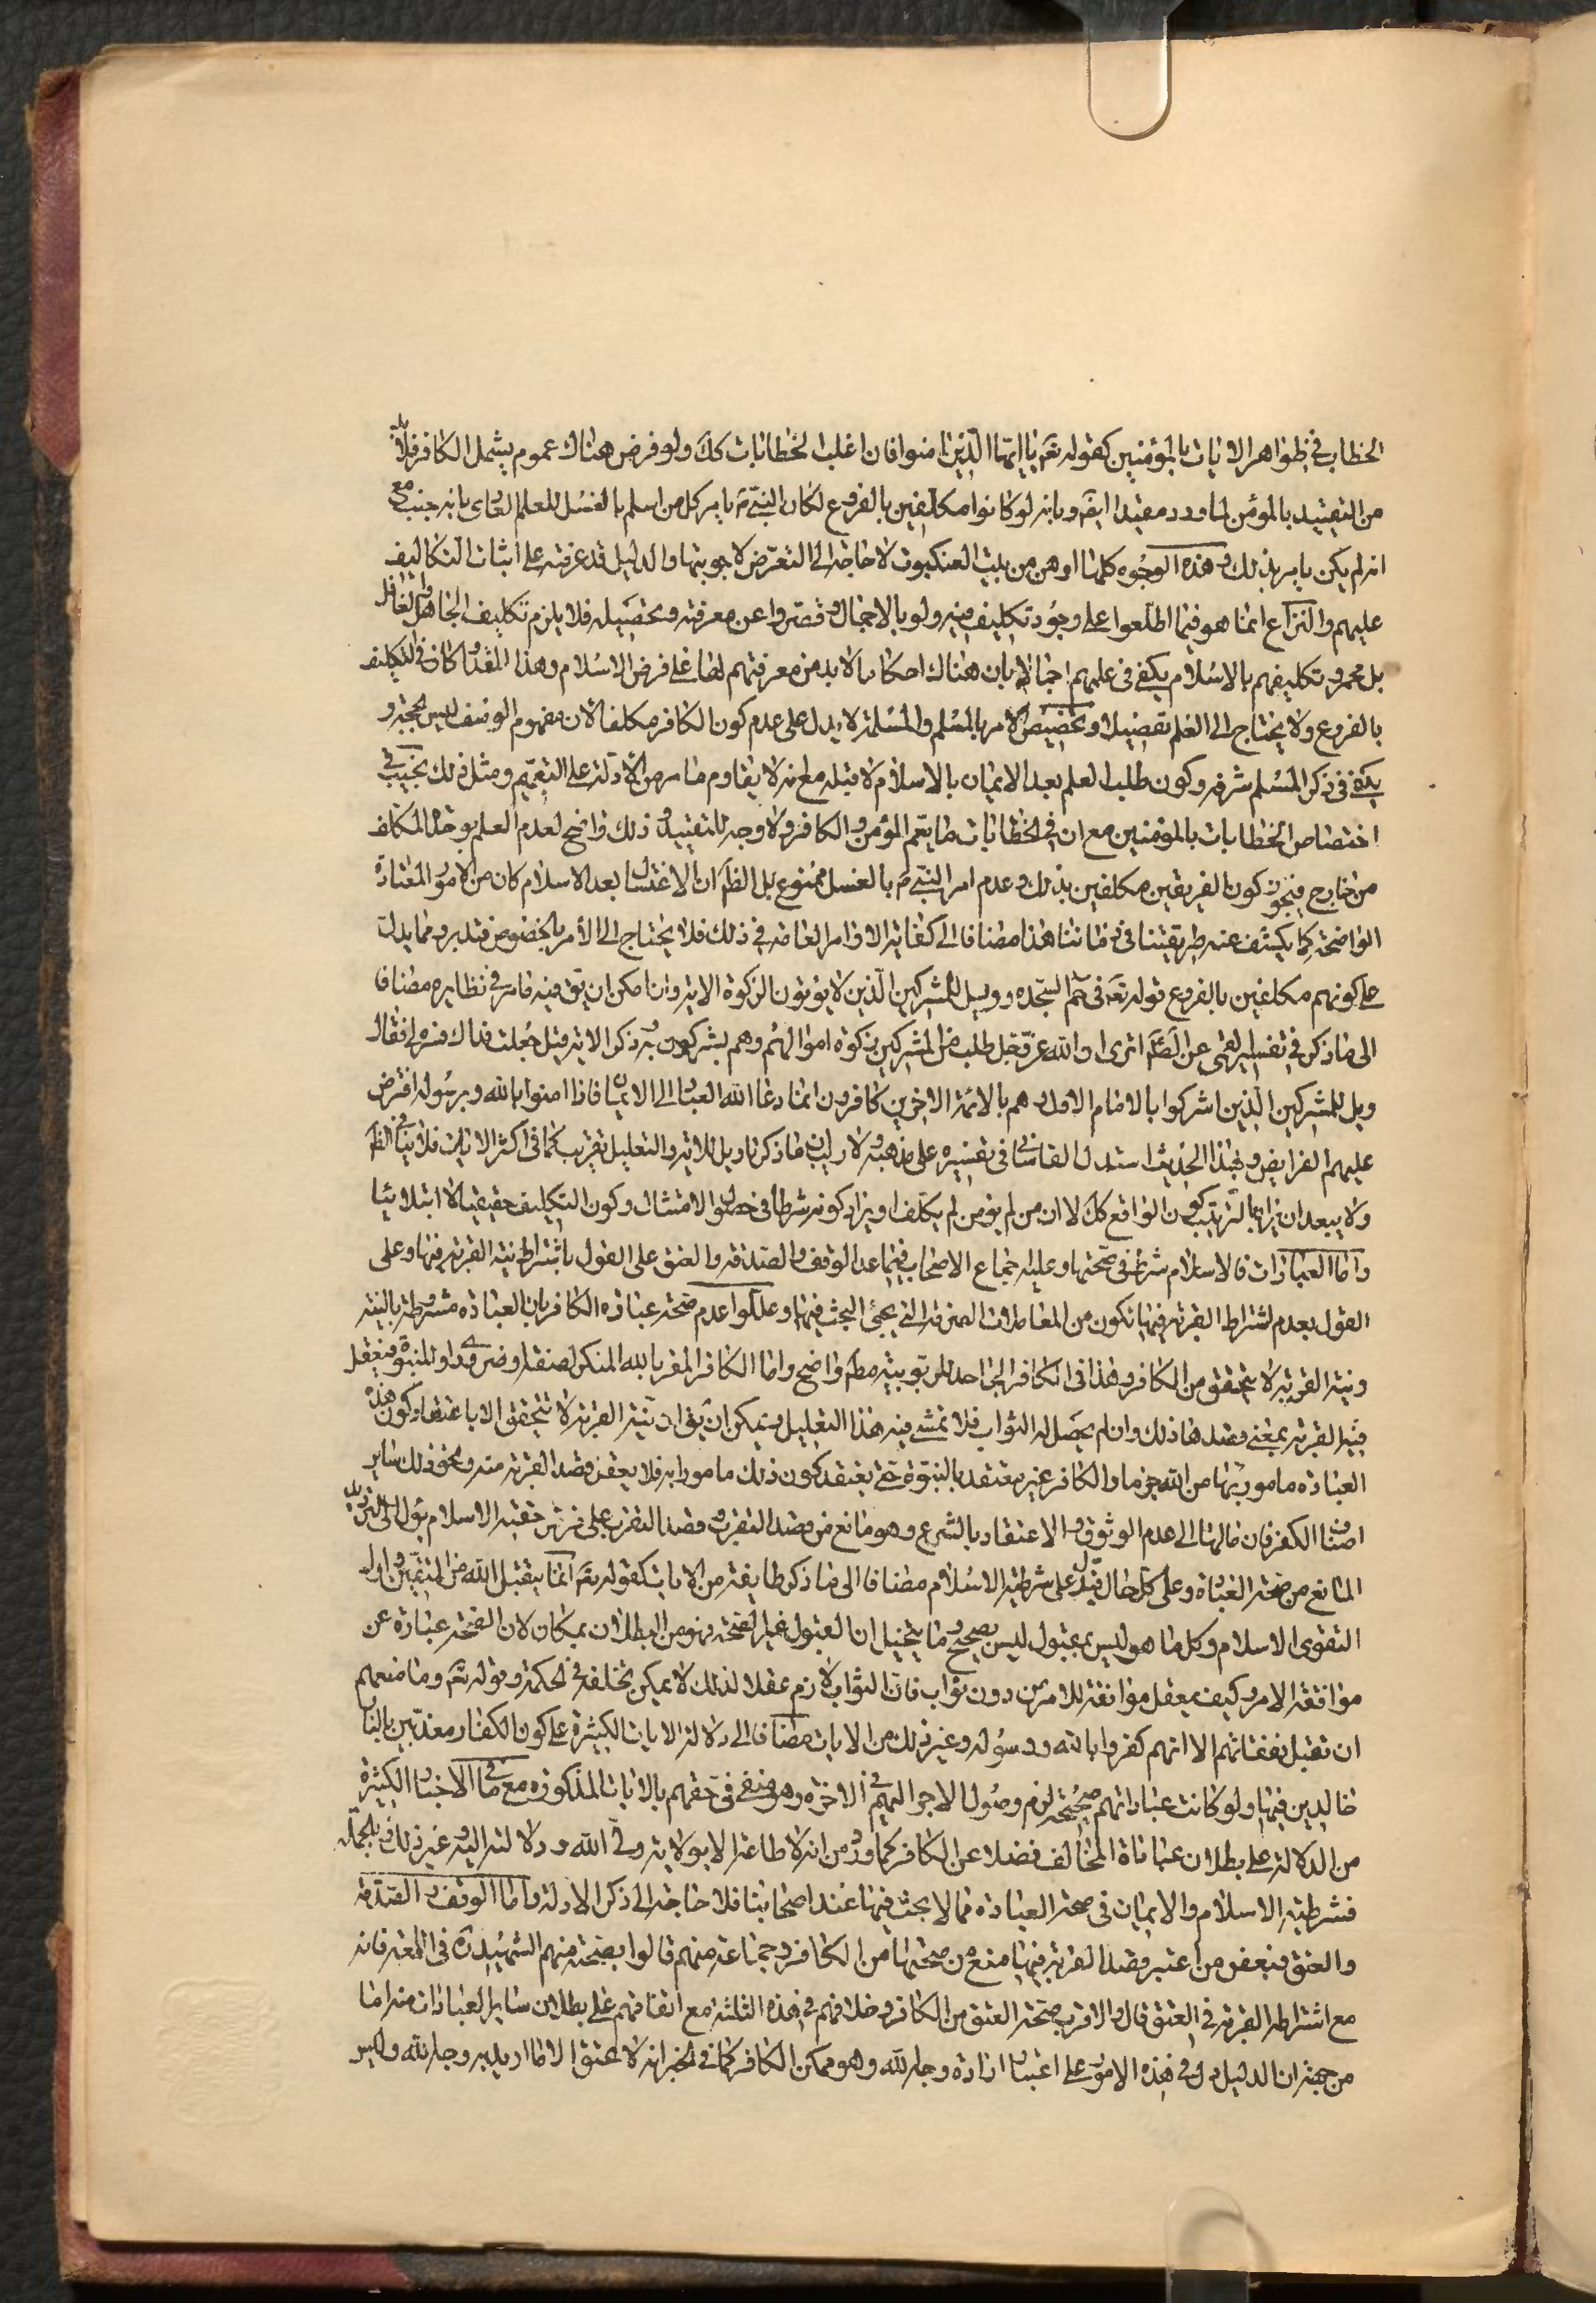 الخطاب في ظواهر الايات بالمؤمنين كقوله تعَ يا ايها الّذين امنوا فان اغلب الخطابات كك ولو فرض هناك عموم يشمل الكافر فلابد
من التقييد بالمؤمن لما ورد مقيدا ايضَ وبانه لو كانوا مكلفين بالفروع لكان النبي ص يامر كل من اسلم بالغسل للعلم العادى بانه جنب مع
انه لم يكن يامر بذلك وهذه الوجوه كلها اوهن من بيت العنكبوت لا حاجة الى التعرّض لاجوبتها والدليل قد عرفته على اثبات التكاليف
عليهم والنزاع انما هو فيما اطلعوا على وجود تكليف فيه ولو بالاجمال وقصّروا عن معرفته وتحصيله فلا يلزم تكليف الجاهل والغافل
بل مجرد تكليفهم بالاسلام يكفي في علمهم اجمالا بان هناك احكاما لابد من معرفتهم لها على فرض الاسلام وهذا المقدار كان في التكليف
بالفروع ولا يحتاج الى العلم تفصيلا وتخصيص الامر بالمسلم والمسلمة لا يدل على عدم كون الكافر مكلفا لان مفهوم الوصف ليس بحجة و
يكفي في ذكر المسلم شرفه وكون طلب العلم بعد الايمان بالاسلام لا قبله مع انه لا يقاوم ما مر من الادلة على التعميم ومثل ذلك يجيب في
اختصاص الخطابات بالمؤمنين مع ان في الخطابات ما يعم المؤمن والكافر ولا وجه للتقييد و ذلك واضح لعدم العلم بوحدة المكلف
من خارج فيجوز كون الفريقين مكلفين بذلك وعدم امر النبي ص بالغسل ممنوع بل الظَ ان الاغتسال بعد الاسلام كان من الامور المعتادة
الواضحة كما يكشف عنه طريقتنا في زماننا هذا مضافا الى كفاية الاوامر العامة في ذلك فلا يحتاج الى الأمر بالخصوص فتدبر ومما يدل
على كونهم مكلفين بالفروع قوله تعَ في حم السّجده وويل للمشركين الّذين لا يؤتون الزكوة الاية وان امكن ان يق فيه ما مر في نظايره مضافا
الى ما ذكر في تفسير القمي عن الصَ اترى ان الله عزّ وجل طلب من المشركين زكوة اموالهم وهم يشركون به ذكر الاية قيل جعلت فداك فسره لي فقال
ويل للمشركين الّذين اشركوا بالامام الاول وهم بالائمة الاخرين كافرون انما دعا الله العباد الى الايمان فاذا امنوا بالله وبرسوله افترض
عليهم الفرايض وبهذا الحديث استدل القاساني في تفسيره على مذهبه ولا ريب ان ما ذكر تاويل للاية والتعليل تقريب كما في اكثر الايات فلا ينافي الظَ
ولا يبعد ان يراد بالترتيب كون الواقع كك لا ان من لم يؤمن لم يكلف او يراد كونه شرطا في حصول الامتثال وكون التكليف حقيقيا لا ابتلائيا
واما العبادات فالاسلام شرط في صحتها وعليه اجماع الاصحاب فيما عدا الوقف والصدقة والعتق على القول باشتراط نية القربة فيها وعلى
القول بعدم اشتراط القربة فيها تكون من المعاملات الصرفة التي يجئ البحث فيها وعللوا عدم صحة عبادة الكافر بان العبادة مشروطة بالنية
ونية القربة لا يتحقق من الكافر وهذا في الكافر الجاحد للربوبية مطَ واضح واما الكافر المقر بالله المنكر لصفة او ضروري او للنبوة فيعقل
فيه القربة بمعنى قصدها ذلك وان لم يحصل له الثواب فلا يتمشى فيه هذا التعليل ويمكن ان يق ان نية القربة لا تتحقق الا باعتقاد كون هذه
العبادة مامورا بها من الله جزما والكافر غير معتقد بالنبوة حتى يعتقد كون ذلك مامورا به فلا يعقل قصد القربة منه ونحو ذلك ساير
اصناف الكفر فان مالها الى عدم الوثوق والاعتقاد بالشرع وهو مانع من قصد التقرب وقصد التقرب على فرض حقية الاسلام يؤل الى الترديد
المانع من صحة العبادة وعلى كل حال فيدل على شرطية الاسلام مضافا الى ما ذكر طايفة من الايات كقوله تعَ انما يتقبل الله من المتقين واول
التقوى الاسلام وكل ما هو ليس بمقبول ليس بصحيح وما يتخيل ان القبول غير الصحة فهو من البطلان بمكان لان الصحة عبارة عن
موافقة الامر وكيف يعقل موافقة للامر من دون ثواب فان الثواب لازم عقلا لذلك لا يمكن تخلفه في الحكمة وقوله تعَ وما منعهم
ان تقبل نفقاتهم الا انهم كفروا بالله ورسوله وغير ذلك من الايات مضافا الى دلالة الايات الكثيرة على كون الكفار معذبين بالنار
خالدين فيها ولو كانت عباداتهم صحيحة لزم وصول الاجر اليهم في الاخرة وهو منفي في حقهم بالايات المذكورة مع ما في الاخبار الكثيرة
من الدلالة على بطلان عبادة المخالف فضلا عن الكافر كما ورد من انه لا طاعة الا بولاية ولي الله ودلالته اليه وغير ذلك وبالجملة
فشرطية الاسلام والايمان في صحة العبادة مما لا بحث فيها عند اصحابنا فلا حاجة الى ذكر الادلة واما الوقف والصدقة
والعتق فبعض من اعتبر قصد القربة فيها منع من صحتها من الكافر وجماعة منهم قالوا بصحته منهم الشهيد ره في اللمعة فانه
مع اشتراطه القربة في العتق قال والاقرب صحة العتق من الكافر وخلافهم في هذه الثلثة مع اتفاقهم على بطلان ساير العبادات منه اما
من جهة ان الدليل دل في هذه الامور على اعتبار ارادة وجه الله وهو ممكن الكافر كما في الخبر انه لا عتق الا ما اريد به وجه الله وليس